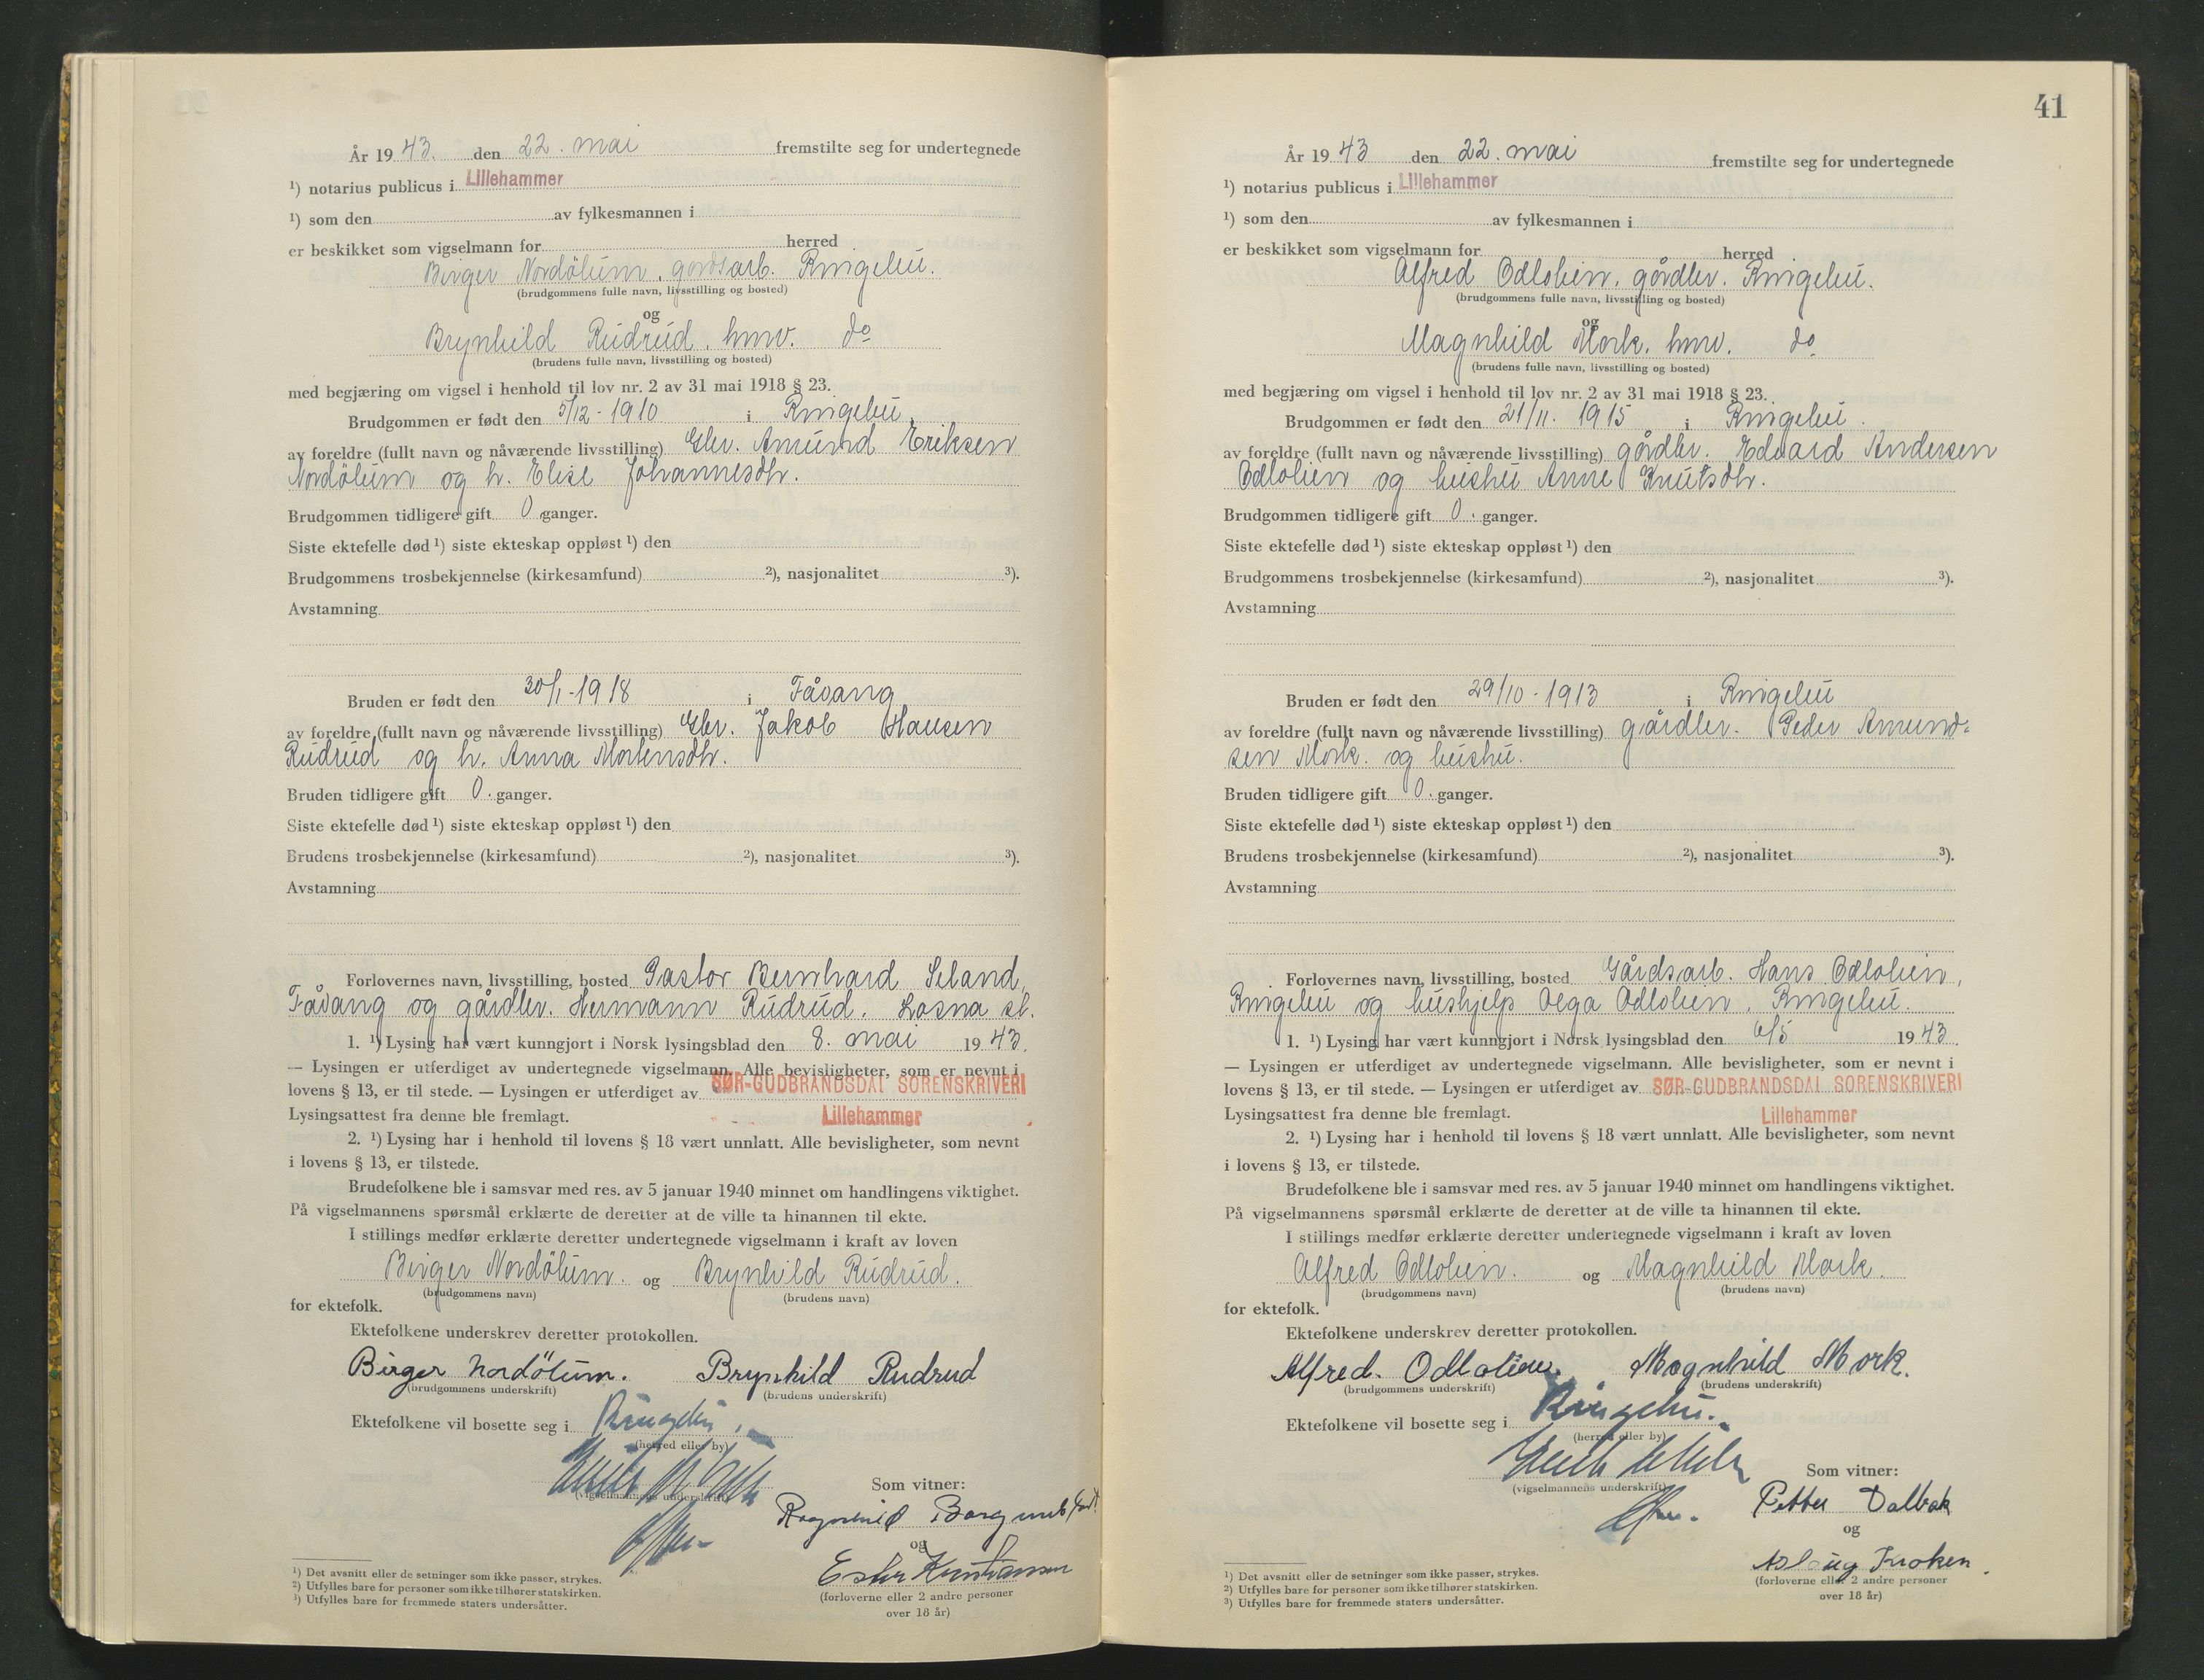 År 1943. den 22. mai fremstilte seg for undertegnede
¹) notarius publicus i Lillehammer
¹) som den av fylkesmannen i
er beskikket som vigselmann for herred
Birger Nordölum, gårdsarb. Ringebu.
(brudgommens fulle navn, livsstilling og bosted)
og
Brynhild Rudrud. hmv. do
(brudens fulle navn, livsstilling og bosted)
med begjæring om vigsel i henhold til lov nr. 2 av 31 mai 1918 § 23.
Brudgommen er født den 5/12 - 1910 i Ringebu.
av foreldre (fullt navn og nåværende livsstilling) Gbr. Amund Eriksen
Nordölum og h. Elise Johannesdtr.
Brudgommen tidligere gift 0 ganger.
Siste ektefelle død ¹) siste ekteskap oppløst ¹) den
Brudgommens trosbekjennelse (kirkesamfund) ²), nasjonalitet ³).
Avstamning
Bruden er født den 30/1 - 1918 i Fåvang
av foreldre (fullt navn og nåværende livsstilling) Gbr. Jakob Hansen
Rudrud og h. Anna Mortensdtr.
Bruden tidligere gift 0. ganger.
Siste ektefelle død ¹) siste ekteskap oppløst ¹) den
Brudens trosbekjennelse (kirkesamfund) ²), nasjonalitet ³).
Avstamning
Forlovernes navn, livsstilling, bosted Pastor Bernhard Seland,
Fåvang og gårdbr. Hermann Rudrud. Losna st.
1. ¹) Lysing har vært kunngjort i Norsk lysingsblad den 8. mai 1943.
— Lysingen er utferdiget av undertegnede vigselmann. Alle bevisligheter, som er nevnt i
lovens § 13, er til stede. — Lysingen er utferdiget av SØR-GUDBRANDSDAL SORENSKRIVERI
Lysingsattest fra denne ble fremlagt. Lillehammer
2. ¹) Lysing har i henhold til lovens § 18 vært unnlatt. Alle bevisligheter, som nevnt
i lovens § 13, er tilstede.
Brudefolkene ble i samsvar med res. av 5 januar 1940 minnet om handlingens viktighet.
På vigselmannens spørsmål erklærte de deretter at de ville ta hinannen til ekte.
I stillings medfør erklærte deretter undertegnede vigselmann i kraft av loven
Birger Nordölum. og Brynhild Rudrud.
(brudgommens navn) (brudens navn)
for ektefolk.
Ektefolkene underskrev deretter protokollen.
Birger Nordölum. Brynhild Rudrud
(brudgommens underskrift) (brudens underskrift)
Ektefolkene vil bosette seg i Ringebu.
(herred eller by)
(vigselmannens underskrift)
Som vitner:
Ragnhild
og
Ester Kristiansen
(forloverne eller 2 andre personer
over 18 år)
¹) Det avsnitt eller de setninger som ikke passer, strykes.
²) Utfylles bare for personer som ikke tilhører statskirken.
³) Utfylles bare for fremmede staters undersåtter.
41
År 1943 den 22. mai fremstilte seg for undertegnede
¹) notarius publicus i Lillehammer
¹) som den av fylkesmannen i
er beskikket som vigselmann for herred
Alfred Odlolien, gårdbr. Ringebu.
(brudgommens fulle navn, livsstilling og bosted)
og
Magnhild Mork. hmv. do
(brudens fulle navn, livsstilling og bosted)
med begjæring om vigsel i henhold til lov nr. 2 av 31 mai 1918 § 23.
Brudgommen er født den 21/11. 1915 i Ringebu.
av foreldre (fullt navn og nåværende livsstilling) gårdbr. Edvard Andersen
Odlolien og hushu Anne Knutsdtr.
Brudgommen tidligere gift 0. ganger.
Siste ektefelle død ¹) siste ekteskap oppløst ¹) den
Brudgommens trosbekjennelse (kirkesamfund) ²), nasjonalitet ³).
Avstamning
Bruden er født den 29/10 - 1913 i Ringebu
av foreldre (fullt navn og nåværende livsstilling) gårdbr. Peder Amund-
sen Mork. og hushu.
Bruden tidligere gift 0. ganger.
Siste ektefelle død ¹) siste ekteskap oppløst ¹) den
Brudens trosbekjennelse (kirkesamfund) ²), nasjonalitet ³).
Avstamning
Forlovernes navn, livsstilling, bosted Gårdsarb. Hans Odlolien,
Ringebu og hushjelp Olga Odlolien, Ringebu.
1. ¹) Lysing har vært kunngjort i Norsk lysingsblad den 6/5 1943.
— Lysingen er utferdiget av undertegnede vigselmann. Alle bevisligheter, som er nevnt i
lovens § 13, er til stede. — Lysingen er utferdiget av SØR-GUDBRANDSDAL SORENSKRIVERI
Lysingsattest fra denne ble fremlagt. Lillehammer
2. ¹) Lysing har i henhold til lovens § 18 vært unnlatt. Alle bevisligheter, som nevnt
i lovens § 13, er tilstede.
Brudefolkene ble i samsvar med res. av 5 januar 1940 minnet om handlingens viktighet.
På vigselmannens spørsmål erklærte de deretter at de ville ta hinannen til ekte.
I stillings medfør erklærte deretter undertegnede vigselmann i kraft av loven
Alfred Odlolien. og Magnhild Mork.
(brudgommens navn) (brudens navn)
for ektefolk.
Ektefolkene underskrev deretter protokollen.
Alfred. Odlolien. Magnhild Mork.
(brudgommens underskrift) (brudens underskrift)
Ektefolkene vil bosette seg i Ringebu.
(herred eller by)
(vigselmannens underskrift)
Som vitner:
Petter Dalbak
og
Aslaug Kroken.
(forloverne eller 2 andre personer
over 18 år)
¹) Det avsnitt eller de setninger som ikke passer, strykes.
²) Utfylles bare for personer som ikke tilhører statskirken.
³) Utfylles bare for fremmede staters undersåtter.